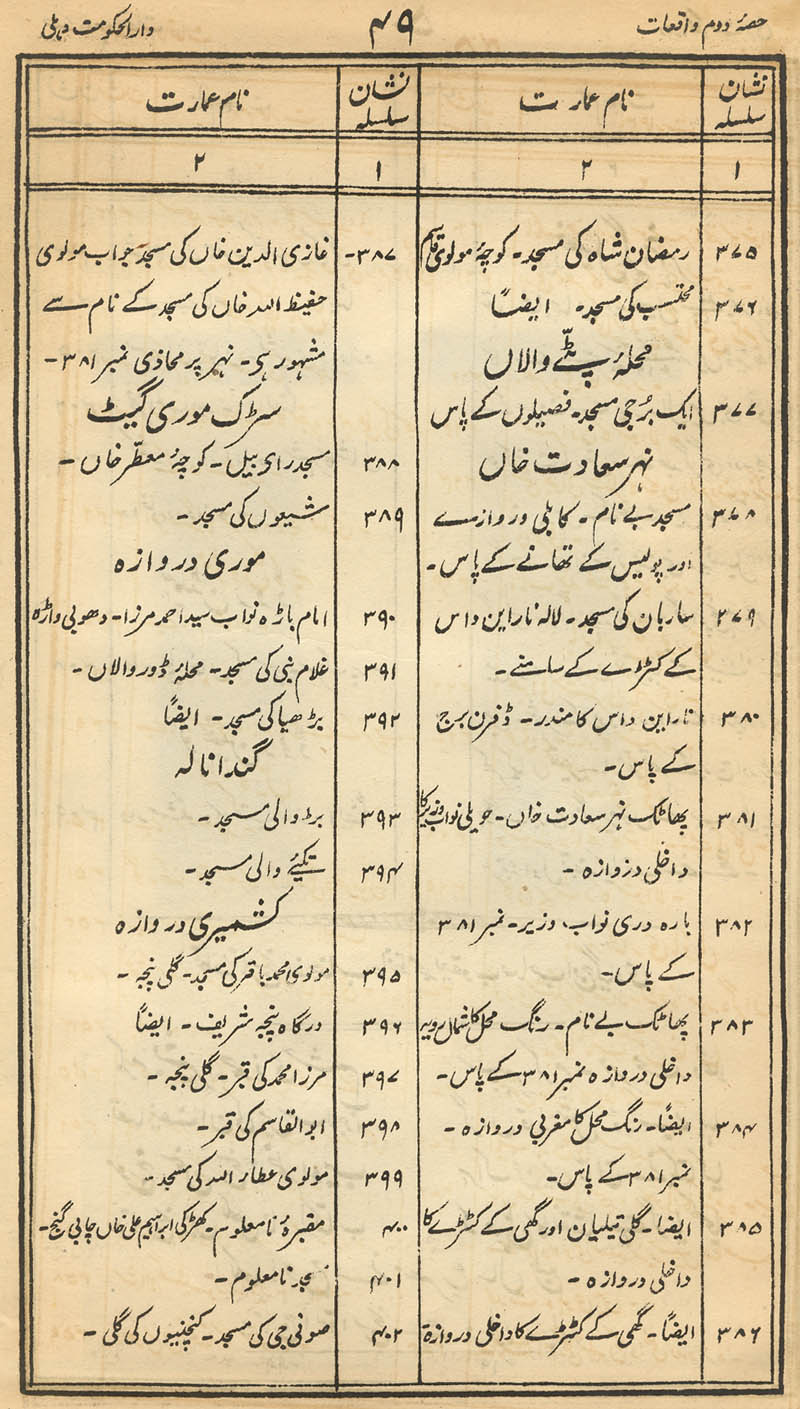 حصۂ دوم واقعات
۴۹
دارالحکومت دہلی
نشان سلسلہ
نام عمارت
۱
۲
۳۷۵ رمضان شاہ کی مسجد۔ کوچۂ مولوی قاسم
۳۷۶ محتسب کی مسجد۔ ایضاً
محلۂ پٹّے والاں
۳۷۷ ایک بُرجی مسجد۔ فصیلوں کے پاس
نہر سعادت خاں
۳۷۸ مسجد بے نام۔ کابلی دروازے
اور پولیس کے تھانے کے پاس۔
۳۷۹ ساربان کی مسجد۔ لالہ ناراین داس
کے کٹڑے کے سامنے۔
۳۸۰ ناراین داس کا مندر۔ ڈفرن برج
کے پاس۔
۳۸۱ پھاٹک نہر سعادت خاں۔ حویلی نواب وزیر کا
داخلی دروازہ۔
۳۸۲ بارہ دری نواب وزیر۔ نمبر ۳۸۱
کے پاس۔
۳۸۳ پھاٹک بے نام۔ رنگ محل کا شمال رویہ
داخلی دروازہ نمبر ۳۸۱ کے پاس۔
۳۸۴ ایضاً۔ رنگ محل کا مغربی دروازہ۔
نمبر ۳۸۱ کے پاس۔
۳۸۵ ایضاً۔ گلی تیلیان اور گھی کے کٹڑے کا
داخلی دروازہ۔
۳۸۶ ایضاً۔ گھی کے کٹڑے کا داخلی دروازۃ
نشان سلسلہ
نام عمارت
۱
۲
۳۸۷۔ غازی الدین خاں کی مسجد جو اب مولوی
حفیظ اللہ خاں کی مسجد کے نام سے
مشہور ہی۔ نہر پر محاذی نمبر ۳۸۱۔
سڑک موری گیٹ
۳۸۸ مسجد رای بیل۔ کوچۂ معطّر خاں۔
۳۸۹ شیعوں کی مسجد۔
موری دروازہ
۳۹۰ امام باڑہ نواب سید احمد مرزا۔ دھوبی واڑہ
۳۹۱ غلام نبی کی مسجد۔ محلۂ ڈور والاں۔
۳۹۲ بڑھیا کی مسجد۔ ایضاً
گندا نالہ
۳۹۳ بڑ والی مسجد۔
۳۹۴ تکیئے والی مسجد۔
کشمیری دروازہ
۳۹۵ مولوی محمد باقر کی مسجد۔ گلی پنجہ۔
۳۹۶ درگاہ پنجہ شریف۔ ایضاً
۳۹۷ مرزا محمد کی قبر۔ گلی پنجہ۔
۳۹۸ ابوالقاسم کی قبر۔
۳۹۹ مولوی عطار اللہ کی مسجد۔
۴۰۰ مقبرۂ نامعلوم۔ کھڑکی ابراہیم علی خاں چابی گنج۔
۴۰۱ مسجد نامعلوم۔
۴۰۲ صوفی جی کی مسجد۔ کنچنیوں کی گلی۔